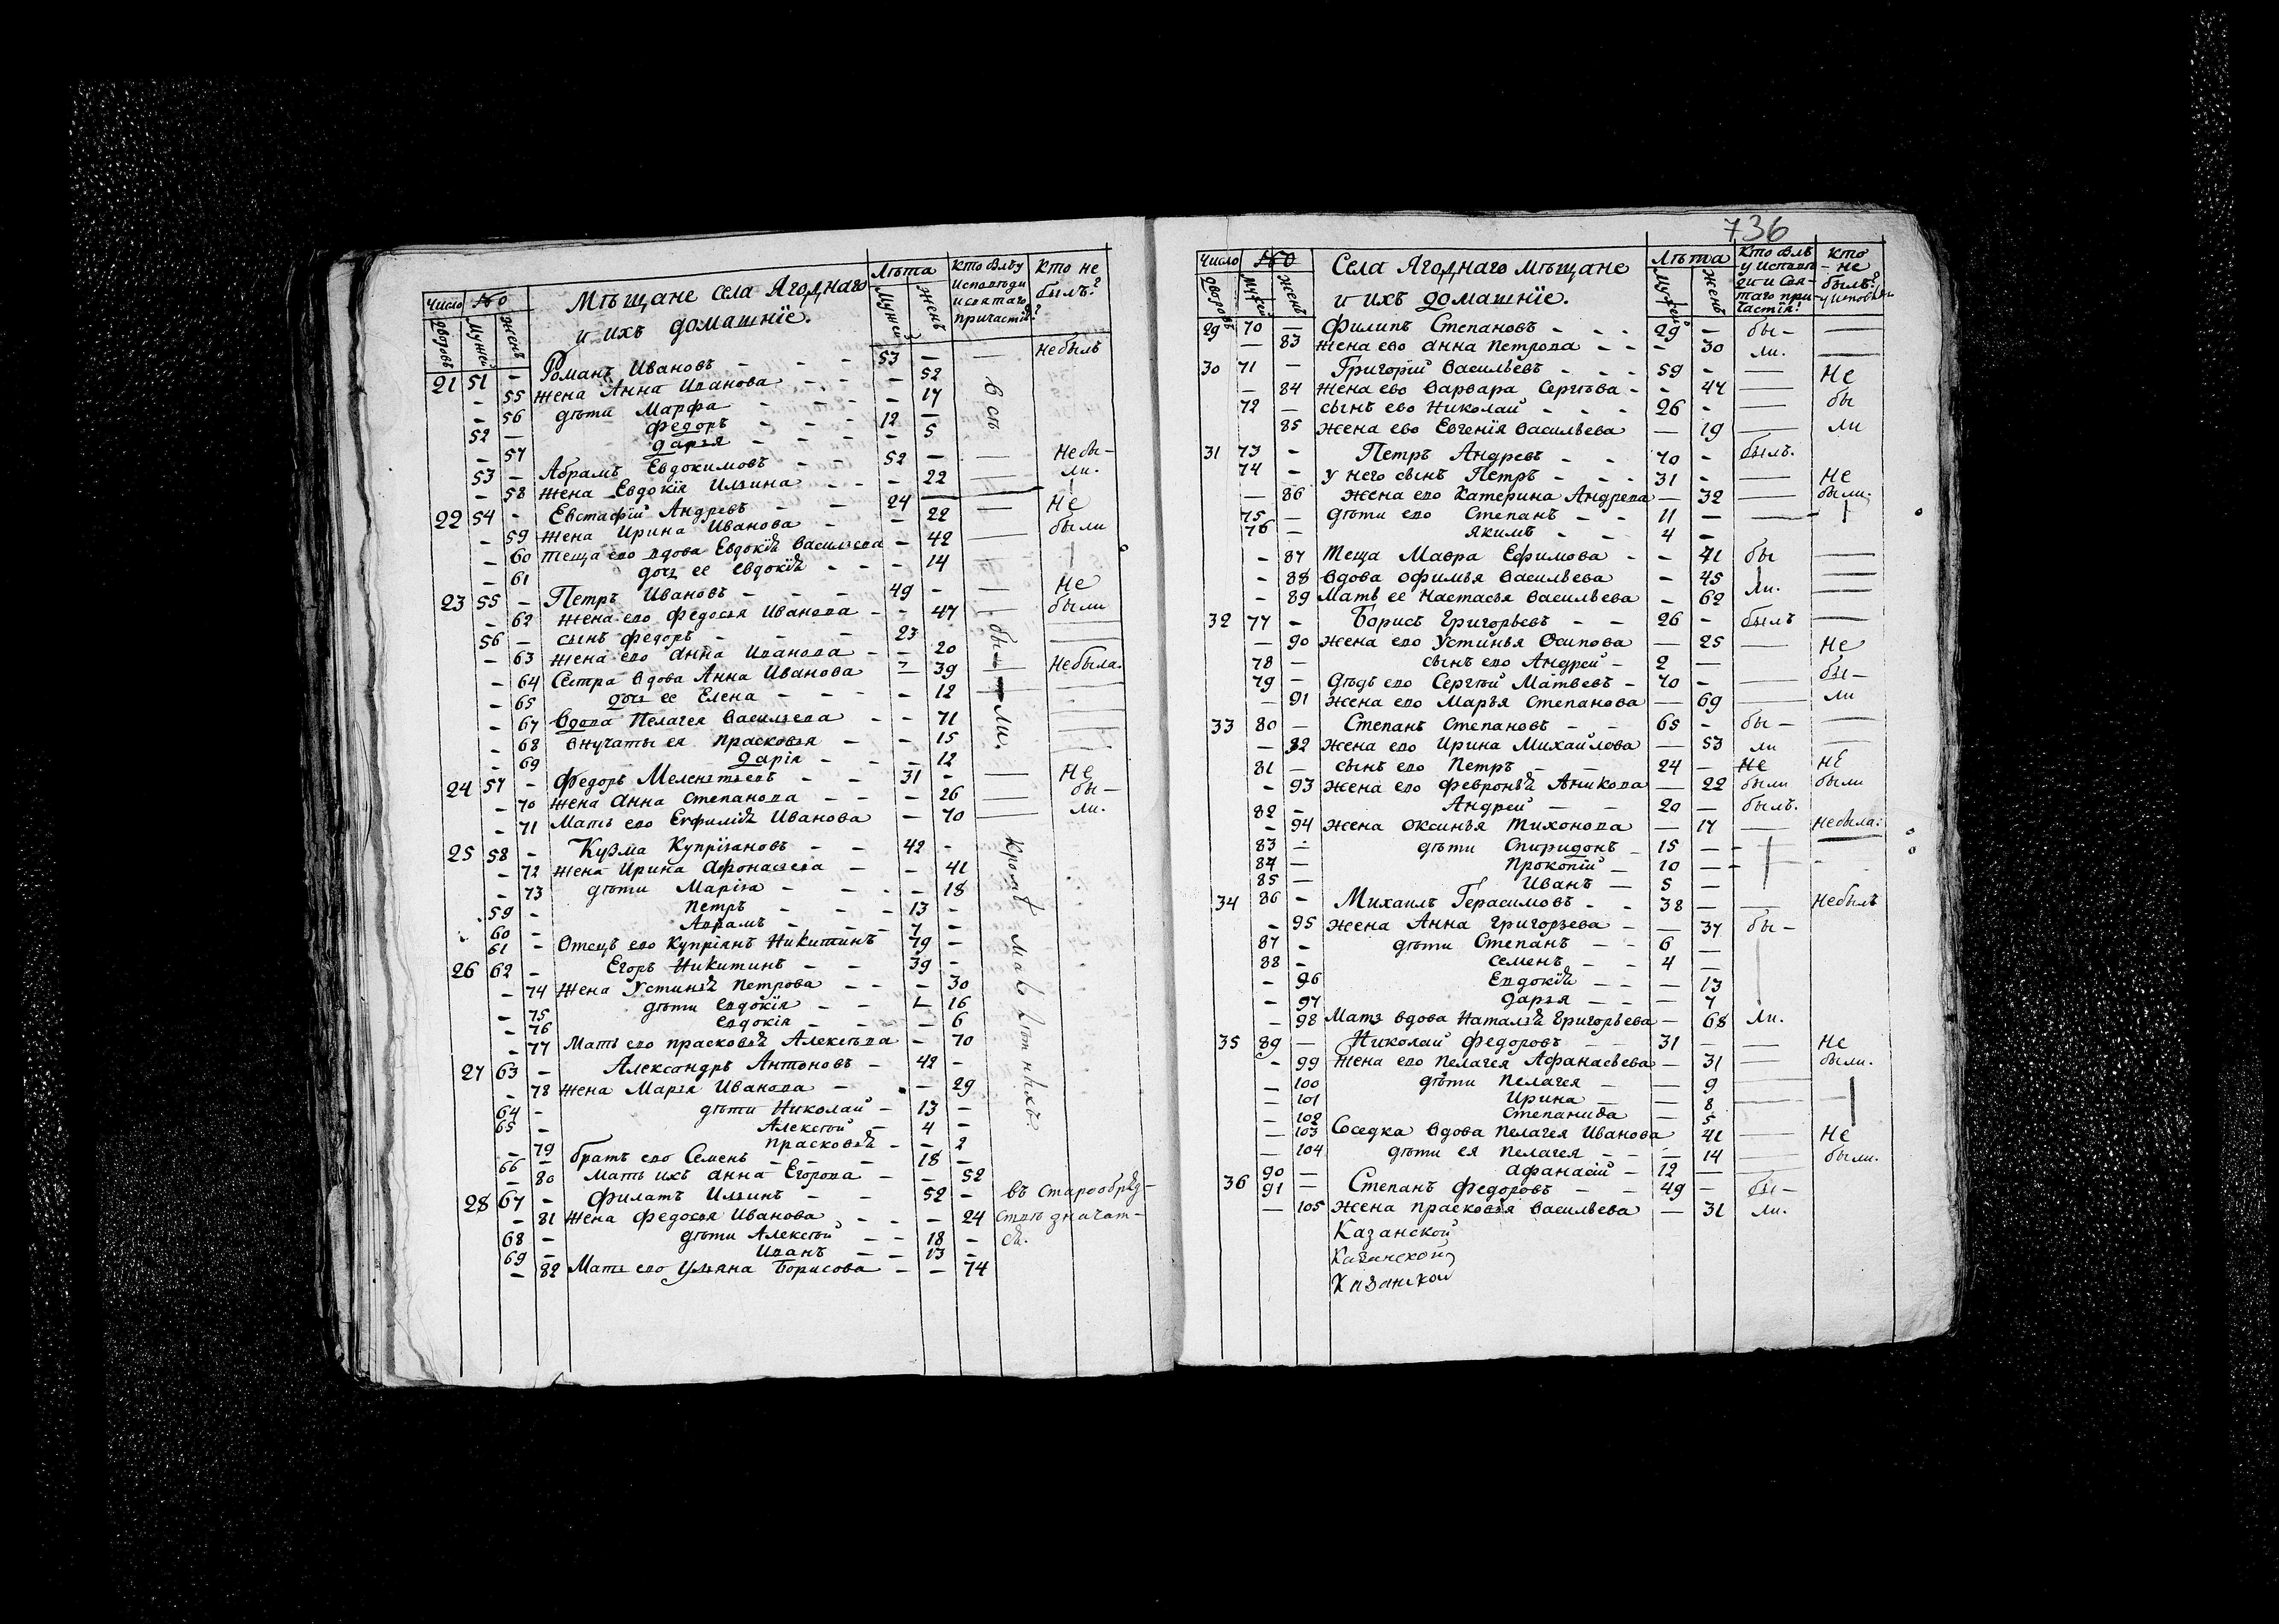 Число №0 Мѣщане села Ягоднаго Лѣта Кто былъ у Кто не
дворовъ Мужей Женъ и ихъ домашніе. Мужей Женъ исповѣди и святаго причастія? былъ?
21 51 – Романъ Ивановъ – – – 53 – — Небылъ
– 55 жена Анна Иванова – – – 52
– 56 дѣти Марфа – – – 17
52 – Федоръ – – – 12 –
– 57 Дарья – – – 5
53 – Абрамъ Евдокимовъ – – 52 – — Небы–
– 58 жена Евдокія Ильина – – – 22 — ли.
22 54 – Евстафій Андреевъ – – 24 — — Не
– 59 жена Ирина Иванова – – 22 — были
– 60 теща ево вдова Евдокія Васильева – 42
– 61 дочь ее Евдокія – – – 14
23 55 – Петръ Ивановъ – – – 49 – — Не
– 62 жена ево Федосья Иванова – – 47 — были
56 – сынъ Федоръ – – – 23
– 63 жена ево Анна Иванова – – 20 бы–
– 64 Сестра вдова Анна Иванова – 39 Небыла.
– 65 дочь ее Елена – – – – 12
– 67 Вдова Пелагея Васильева – – 71 ли.
– 68 внучаты ея Прасковья – – 15
– 69 Дарія – – – 12
24 57 – Федоръ Мелентьевъ – – 31 – — Не
– 70 жена Анна Степанова – – – 26 — бы–
– 71 Мать ево Евфимія Иванова – 70 — ли.
25 58 – Кузма Купріяновъ – – 42 –
– 72 жена Ирина Афонасьева – – 41
– 73 дѣти Марія – – – – 18
59 – Петръ – – – 13 –
60 – Авраамъ – – – 7 –
61 – Отецъ ево Купріянъ Никитинъ 79 –
26 62 – Егоръ Никитинъ – – 39 –
– 74 жена Устинья Петрова – – – 30
– 75 дѣти Евдокія – – – 16
– 76 Евдокія – – – 6
– 77 Мать ево Прасковья Алексѣева – 70
27 63 – Александръ Антоновъ – 42 –
– 78 жена Марья Иванова – – 29
64 – дѣти Николай – 13 –
65 – Алексѣй – 4 –
– 79 Прасковья – – 2
66 – братъ ево Семенъ – – – 18 –
– 80 Мать ихъ Анна Егорова – – 52
Кромѣ малолѣтнихъ
28 67 – Филатъ Ильинъ – – 52 – въ старообряд–
– 81 жена Федосья Иванова – – – 24 ствѣ значат–
68 – дѣти Алексѣй – – 18 – ся.
69 – Иванъ – – 13 –
– 82 Мать ево Ульяна Борисова – – 74
736
Число №0 Села Ягоднаго Мѣщане Лѣта Кто былъ Кто
дворовъ Мужей Женъ и ихъ домашніе. Мужей Женъ у исповѣди и святаго причастія? не былъ? у исповѣди
29 70 — Филипъ Степановъ – – – 29 – бы– —
— 83 жена ево Анна Петрова – – – 30 ли. —
30 71 – Григорій Васильевъ – – – 59 – — Не
– 84 жена ево Варвара Сергѣева – – 47 — бы
72 — сынъ ево Николай – – – 26 – — ли
85 жена ево Евгенія Васильева — 19 —
31 73 – Петръ Андреевъ – – 70 – былъ.
74 – у него сынъ Петръ – – – 31 – — Не
— 86 жена ево Катерина Андреева — 32 — были.
75 — дѣти ево Степанъ – – 11 — —
76 — Якимъ – – 4 –
– 87 Теща Мавра Ефимова – – 41 бы —
– 88 Вдова Офимья Васильева – 45 —
– 89 Мать ее Настасья Васильева – 62 ли. —
32 77 – Борисъ Григорьевъ – – 26 – былъ —
— 90 жена ево Устинья Осипова — 25 — Не
78 — сынъ ево Андрей – 2 —
79 – Дѣдъ ево Сергѣй Матвеевъ – 70 – — бы–
— 91 жена ево Марья Степанова — 69 — ли
33 80 — Степанъ Степановъ – – 65 – бы – —
— 92 жена ево Ирина Михайлова — 53 ли —
81 – сынъ ево Петръ – – 24 – Не не
– 93 жена ево Февронья Аникова — 22 были были
82 – Андрей — – 20 — былъ.
– 94 жена Оксинья Тихонова — 17 — Небыла.
83 – дѣти Спиридонъ – 15 –
84 — Прокопій – 10 –
85 — Иванъ — 5 –
34 86 – Михаилъ Герасимовъ – – 38 – — Небылъ
– 95 жена Анна Григорьева – — 37 бы–
87 – дѣти Степанъ – – 6 –
88 – Семенъ – – 4 —
– 96 Евдокія – – — 13
– 97 Дарья – – — 7
– 98 Мать вдова Наталья Григорьева — 68 ли.
35 89 — Николай Федоровъ – – 31 – — Не
– 99 жена ево Пелагея Афанасьева — 31 — были.
– 100 дѣти Пелагея – — 9
– 101 Ирина – — 8
– 102 Степанида — 5
— 103 Соседка вдова Пелагея Иванова 41 — Не
— 104 дѣти ея Пелагея – – — 14 — были.
90 — Афанасій – 12 —
36 91 — Степанъ Федоровъ – – 49 – бы–
— 105 жена Прасковья Васильева — 31 ли.
Казанской
Казанской
Казанской